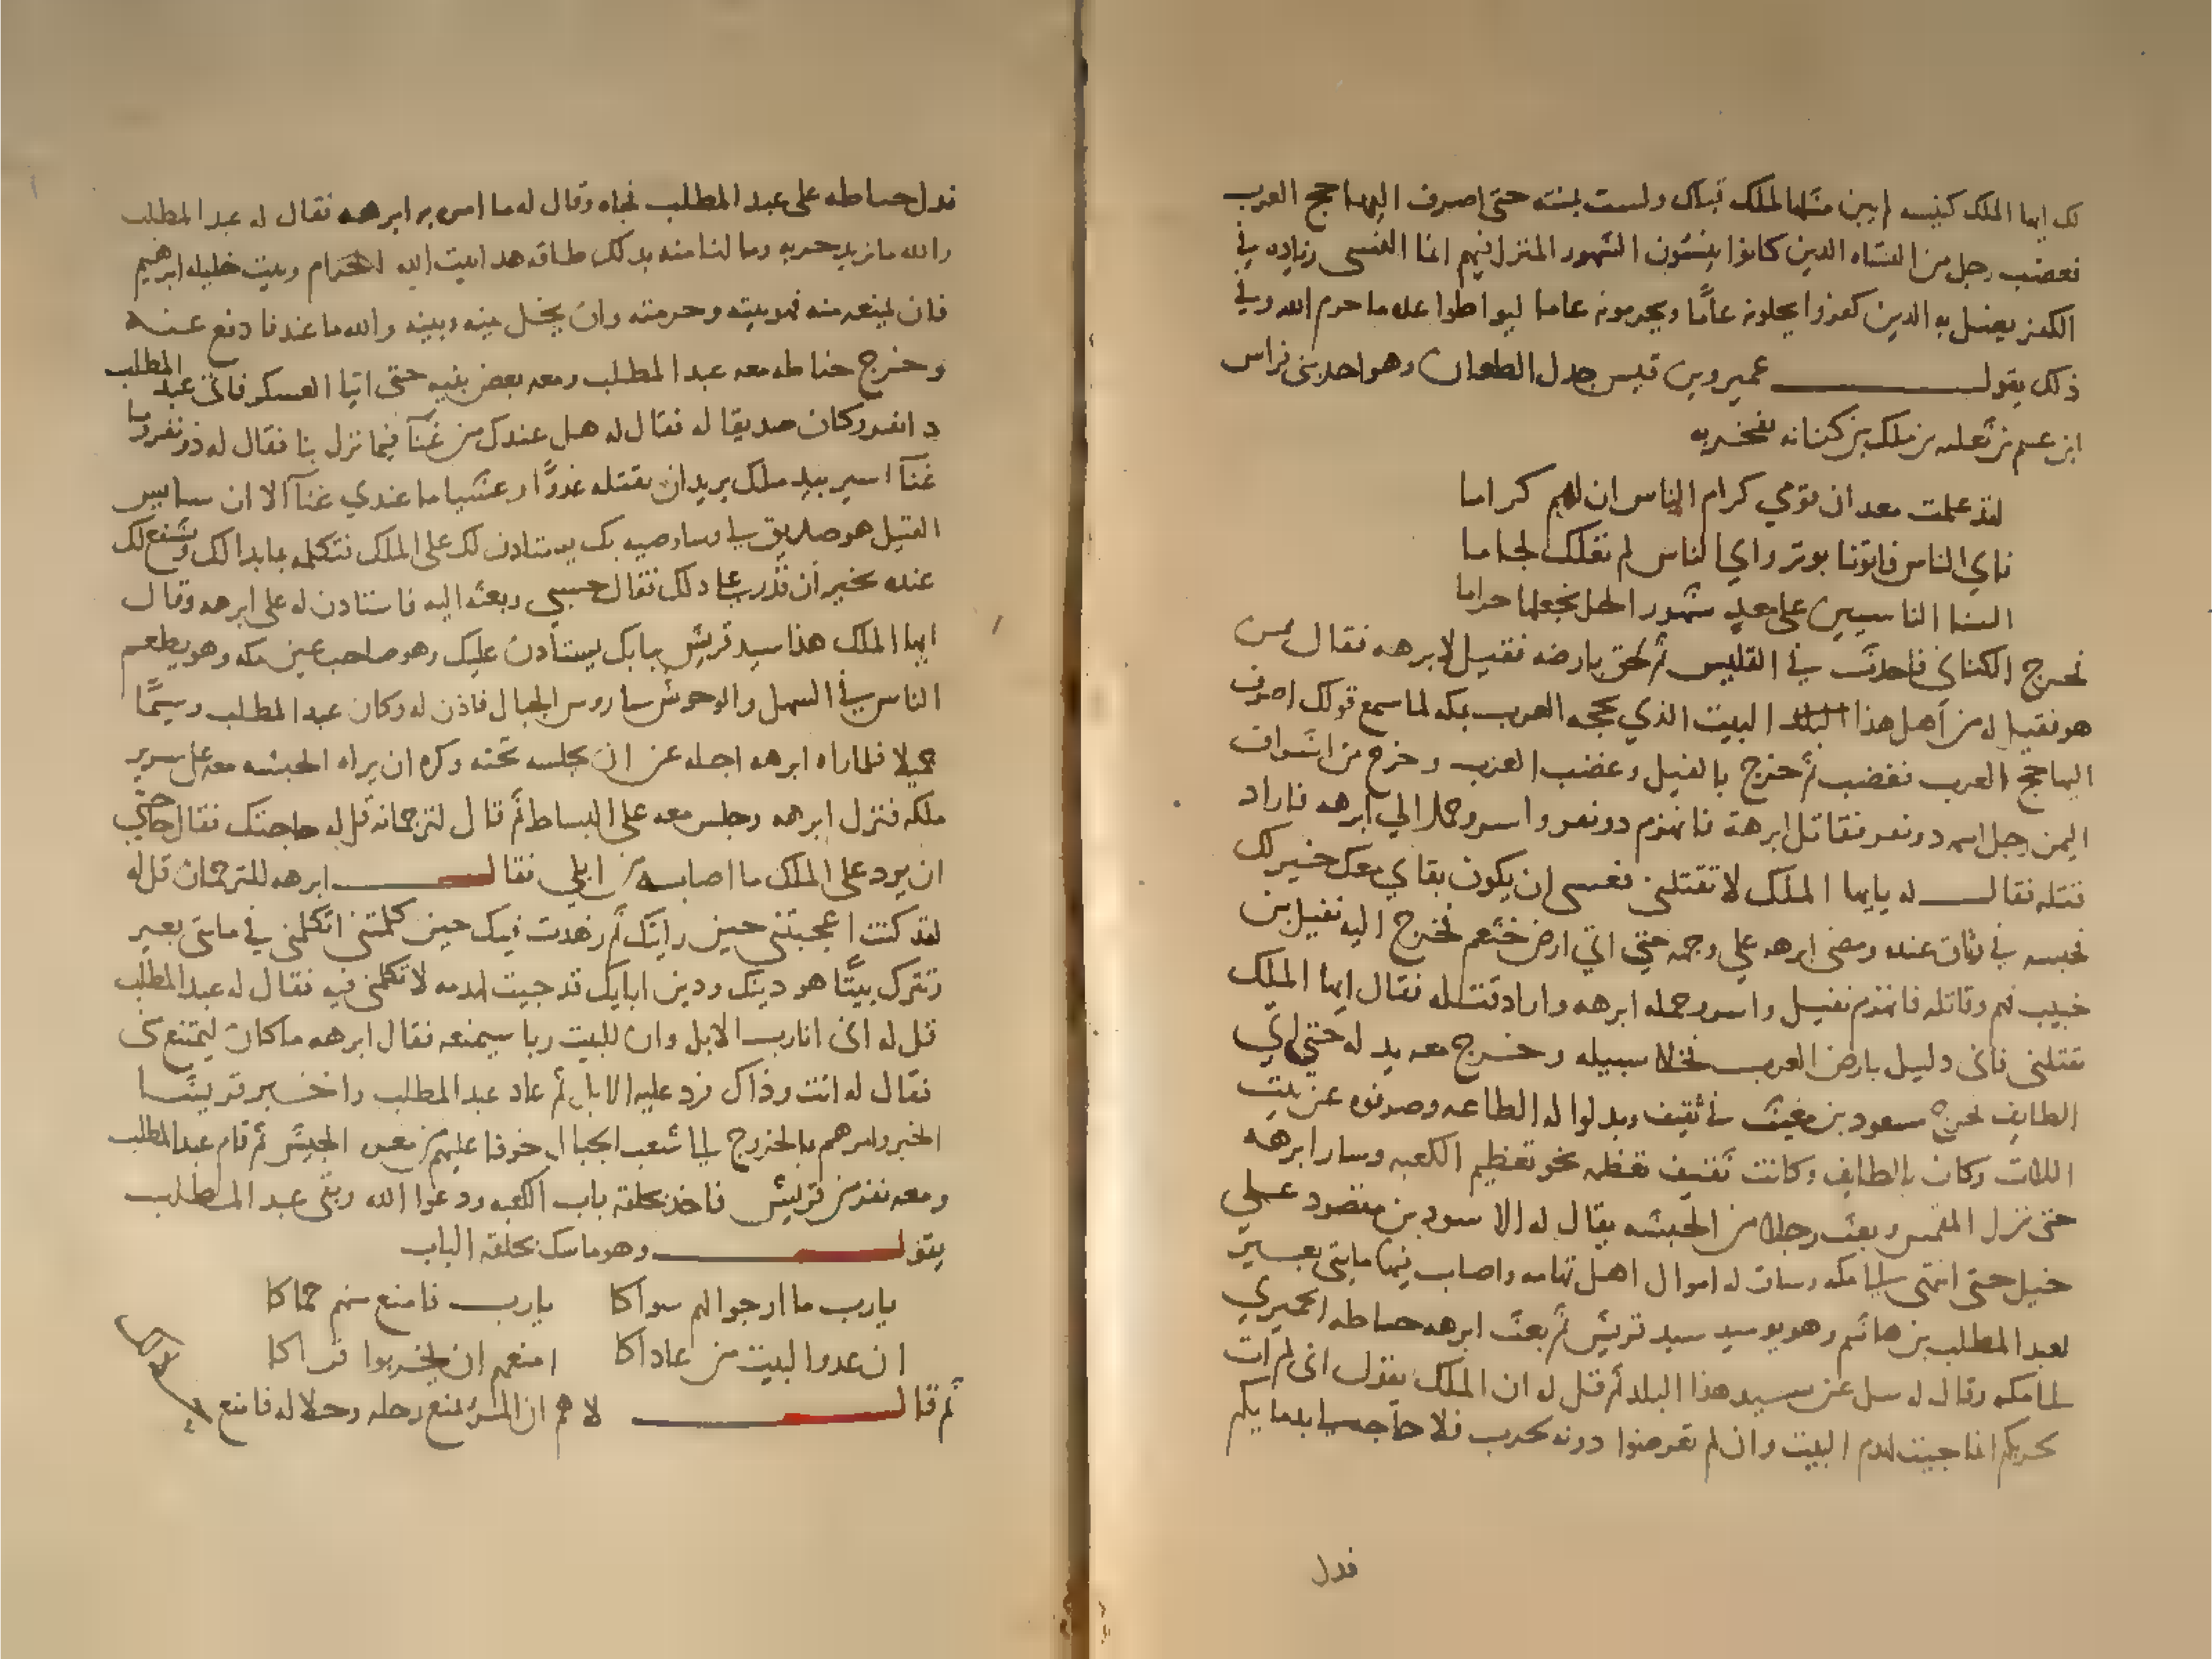 لك ايها الملك كنيسه لم يبن مثلها لملك قبلك ولست بمنته حتى اصرف اليها حج العرب
فغضب رجل من النساه الدين كانوا ينسئون الشهور المنزل فيهم انما النسى زياده في
الكفر يضل به الدين كفروا يحلونه عامًا ويحرمونه عاما ليواطوا عده ما حرم الله وفي
ذلك يقول عمير وبن قيس جدل الطعان وهو احد بنى فراس
ابن غنم بن ثعلبه بن ملك بن كنانه يفخر به
لقد علمت معد ان قومي كرام الناس ان لهم كراما
فاي الناس فاتونا بوتر واي الناس لم نعلك لجاما
السنا الناسيين على معد شهور الحل نجعلها حراما
فخرج الكنانى فاحدث في القليس ثم لحق بارضه فقيل لابرهه فقال من
هو فقيل له من أهل هذا البلد البيت الذي تحجه العرب بمكه لما سمع قولك اصرف
اليها حج العرب فغضب ثم خرج بالفيل وغضب العرب وخرج من اشراف
اليمن رجل اسمه دو نفر فقاتل ابرهة فانهزم دو نفر واسر وحمل الي ابرهه فاراد
قتله فقال له يايها الملك لا تقتلنى فعسى ان يكون بقاي معك خير لك
فحبسه في وثاق عنده ومضى ابرهه علي وجهه حتي اتي ارض خثعم فخرج اليه نفيل بن
حبيب فهم وقاتله فانهزم نفيل واسر وحمله ابرهه واراد قتله فقال ايها الملك
تقتلنى فانى دليل بارض العرب فخلا سبيله وخرج معه يدله حتي اتي
الطايف فخرج مسعود بن مغيث في ثقيف وبدلوا له الطاعه وصرفوه عن بيت
اللات وكان بالطايف وكانت ثقيف تعظمه نحو تعظيم الكعبه وسار ابرهه
حتى نزل المغمس وبعث رجلا من الحبشه يقال له الاسود بن مقصود علي
خيل حتى انتهى الى مكه وساق له اموال اهل تهامه واصاب فيها مايتى بعير
لعبد المطلب بن هاشم وهو يوميد سيد قريش ثم بعث ابرهه حناطه الحميري
الى مكه وقال له سل عن سيد هذا البلد ثم قل له ان الملك يقول انى لم ات
لحربكم انما جيت لهدم البيت وان لم تعرضوا دونه بحرب فلا حاجه لى بدمايكم
فدل
فدل حناطه على عبد المطلب فجاه وقال له ما امر به ابرهه فقال له عبد المطلب
والله ما نريد حربه وما لنا منه بدلك طاقه هدا بيت الله الحرام وبيت خليله ابرهيم
فان يمنعه منه فهو بيته وحرمته وان يخل بينه وبينه والله ما عندنا دفع عنه
وخرج حناطه معه عبد المطلب ومعه بعض بنيه حتى اتيا العسكر فاتى عبد المطلب
دا نفر وكان صديقا له فقال له هل عندك من غنآ فيما نزل بنا فقال له ذو نفر وما
غنآ اسير بيد ملك يريد ان يقتله غدوًا وعشيا ما عندي غنآ الا ان سايس
الفيل هو صديق لي وساوصيه بك يستادن لك على الملك فتكلمه بما بدا لك ويشفع لك
عنده بخير ان قدر على دلك فقال حسبي وبعثه اليه فاستادن له على ابرهه وقال
ايها الملك هذا سيد قريش ببابك يستادن عليك وهو صاحب عين مكه وهو يطعم
الناس في السهل والوحوش في روس الجبال فاذن له وكان عبد المطلب وسيمًا
جميلا فلما راه ابرهه اجله عن ان يجلسه تحته وكره ان يراه الحبشه معه على سرير
ملكه فنزل ابرهه وجلس معه على البساط ثم قال لترجمانه قل له حاجتك فقال حاجتي
ان يرد على الملك ما اصابه من ابلي فقال ابرهه للترجمان قل له
لقد كنت اعجبتنى حين رايتك ثم زهدت فيك حين كلمتنى اتكلمنى في مايتى بعير
وتترك بيتًا هو دينك ودين ابايك قد جيت لهدمه لا تكلمنى فيه فقال له عبد المطلب
قل له انى انا رب الابل وان للبيت ربا سيمنعه فقال ابرهه ما كان ليمتنع منى
فقال له انت وذاك فرد عليه الابل ثم عاد عبد المطلب واخبر قريشا
الخبر وامرهم بالخروج الى شعب الجبال خوفا عليهم من معرة الجيش ثم قام عبد المطلب
ومعه نفر من قريش فاخذ بحلقة باب الكعبه ودعوا الله وبقى عبد المطلب
يقول وهو ماسك بحلقة الباب
يارب ما ارجوا لهم سواكا يارب فامنع منهم حماكا
ان عدوا لبيت من عاداكا امنعهم ان يخربوا قراكا
ثم قال لاهم ان المرء يمنع رحله وحلاله فامنع